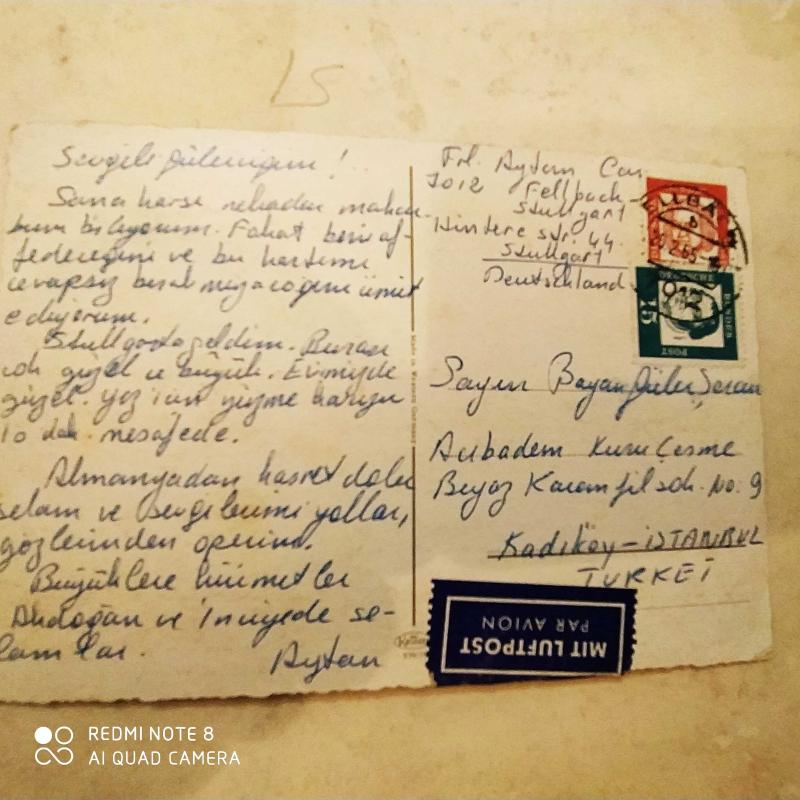 LS
Sevgili Gülenciğim!
Sana karşı nekadar mahcu-
bum biliyorum. Fakat beni af-
fedeceğini ve bu kartımı
cevapsız bırakmıyacağını ümit
ediyorum.
Stuttgarta geldim. Burası
çok güzel ve büyük. Evimizde
güzel. Yüzme havuzu
10 dak. mesafede.
Almanyadan hasret dolu
selam ve sevgilerimi yollar,
gözlerinden öperim.
Büyüklere hürmetler
Akdoğan ve İnciyede se-
lamlar.
Aytan
Frl. Aytan Can
7012 Fellbach-
Stuttgart
Hintere str. 44
Stuttgart
Deutschland
FELLBACH
b
65
7012
DEUTSCHE
BUNDES
POST
15
Sayın Bayan Güler
Acıbadem Kuruçeşme
Beyaz Karanfil sok. No. 9
Kadıköy-İSTANBUL
TURKEI
MIT LUFTPOST
PAR AVION
REDMI NOTE 8
AI QUAD CAMERA